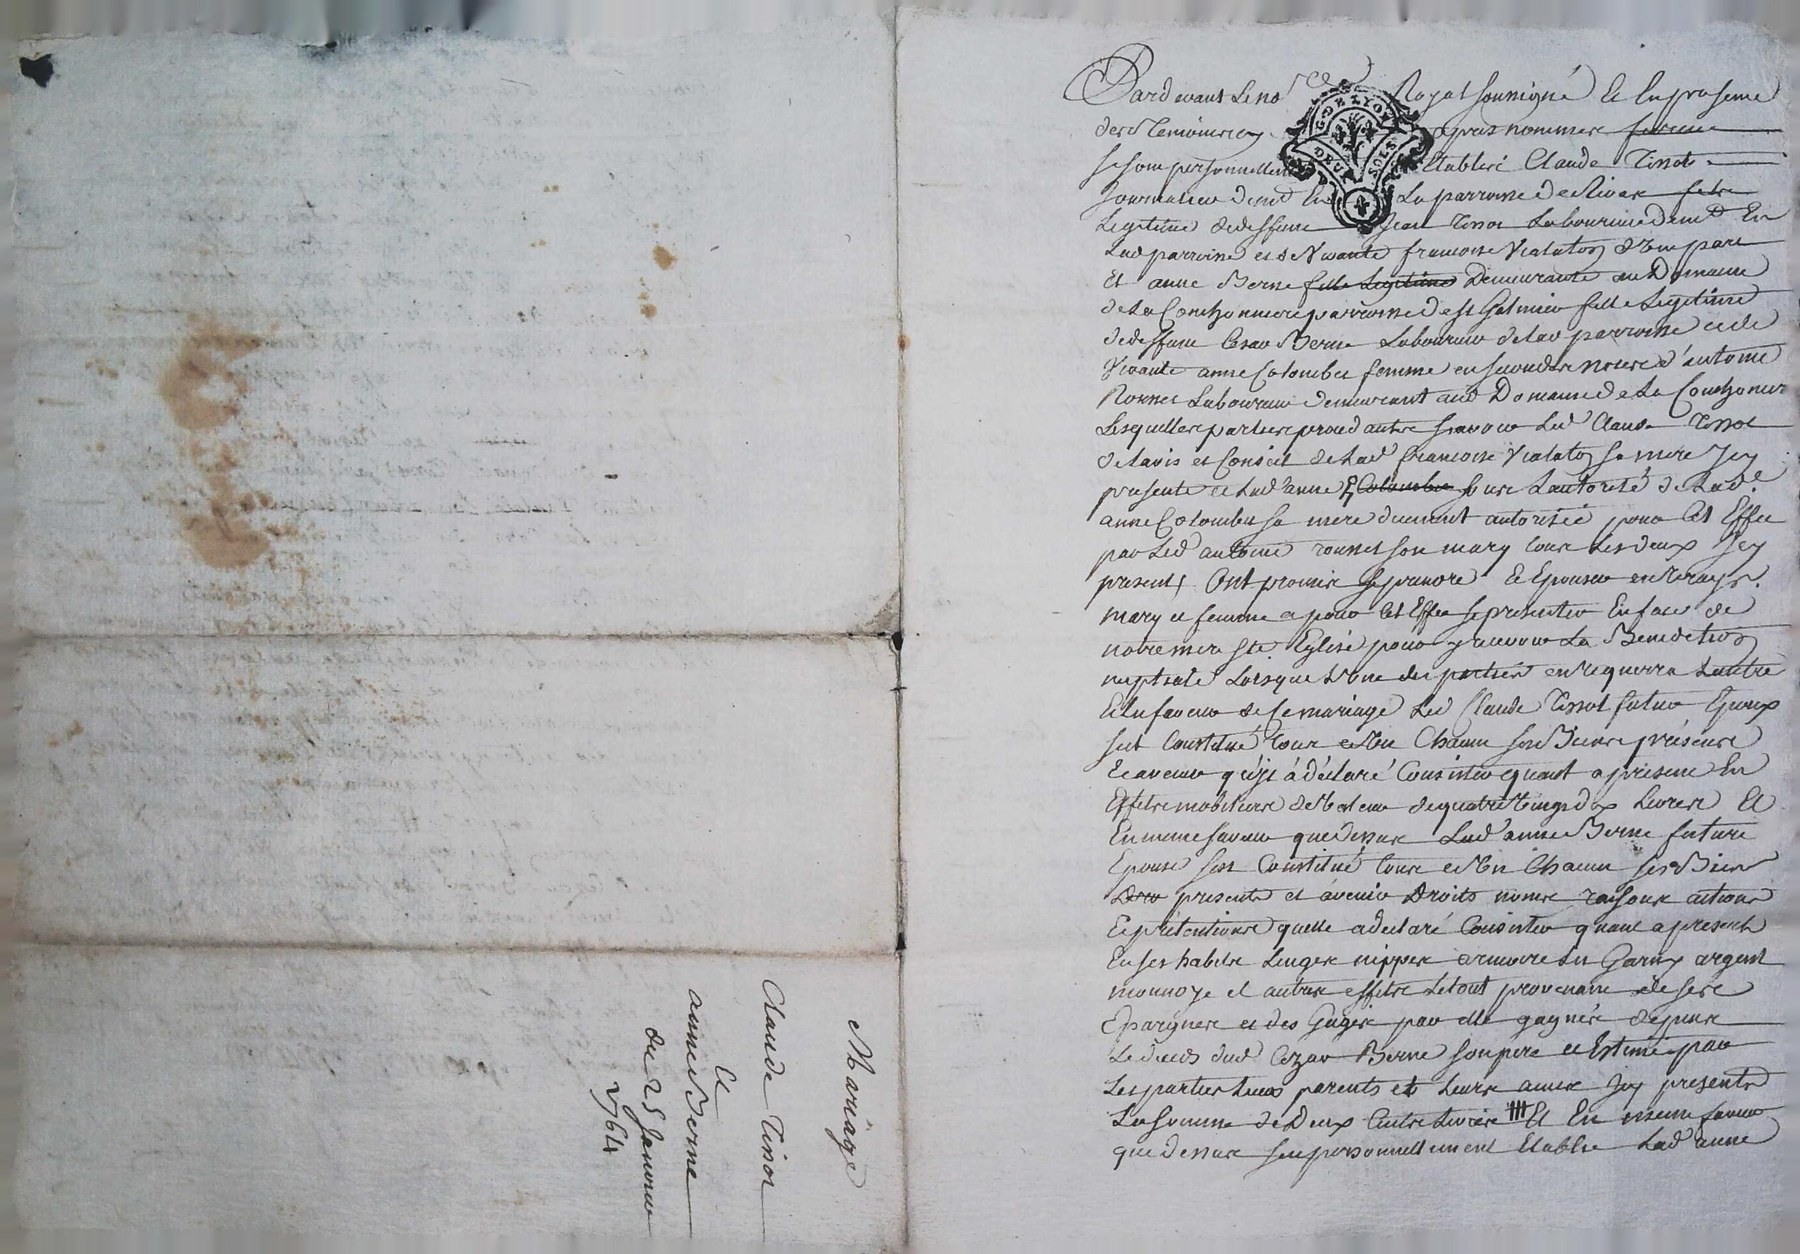 Mariage
Claude Tissot
Et
anne Berne
du 25 Janvier
1764
Pardevant Le no^re Royal soussigné Et En presence
des Temoins Cy apres nommes furent
se sont personnellement Etablis Claude Tissot
Journalier dem^t En La parroisse de Rivas fils
Legitime de deffunt Jean Tissot Laboureur dem^t En
Lad parroisse et de Vivante francoise Vialaton d'Une part
Et anne Berne fille Legitime Demeurante au Domaine
de La Conchonniere parroisse de St Galmier fille Legitime
de deffunt Cesar Berne Laboureur de lad parroisse et de
Vivante anne Colombet femme en secondes noces d'antoine
Ronnet Laboureur demeurant aud Domaine de La Conchonniere
Lesquelles parties procedantes scavoir Led Claude Tissot
de Lavis et Conseil de Lad francoise Vialaton sa mere Icy
presente et Lad anne Colombet sous Lautorité de Lad.
anne Colombet sa mere duement autorisée pour Cet Effet
par Led antoine ronnet son mary tous Les deux Icy
presents Ont promis se prendre Et Epouser en vrays
mary et femme a pour Cet Effet se presenter En face de
notre mere Ste Eglise pour y recevoir La Benediction
nuptiale Lorsque L'Une des parties en requerra Lautre
Et En faveur de Ce mariage Led Claude Tissot futur Epoux
sest Constitué tous et Un Chacun ses Biens présents
Et avenir qu'il à déclaré Consister quant a present En
Effets mobiliers de Valeur de quatre Vingt dix Livres Et
En meme faveur que dessus Lad anne Berne future
Epouse sest Constitué tous et Un Chacun ses Biens
presents et avenir Droits noms raisons actions
Et prétentions quelle a declaré Consister quant a present
En ses habits Linges nippes armoire Garny argent
monnoye et autres effets Le tout provenant de ses
Epargnes et des Gages par elle gagnés depuis
Le deces dud Cezar Berne son pere et Estimé par
Les parties Leurs parents et Leurs amis Icy presents
La somme de Deux Cents Livres Et En meme faveur
que dessus sest personnellement Etablie Lad anne
G. DE LYON
DEUX SOLS